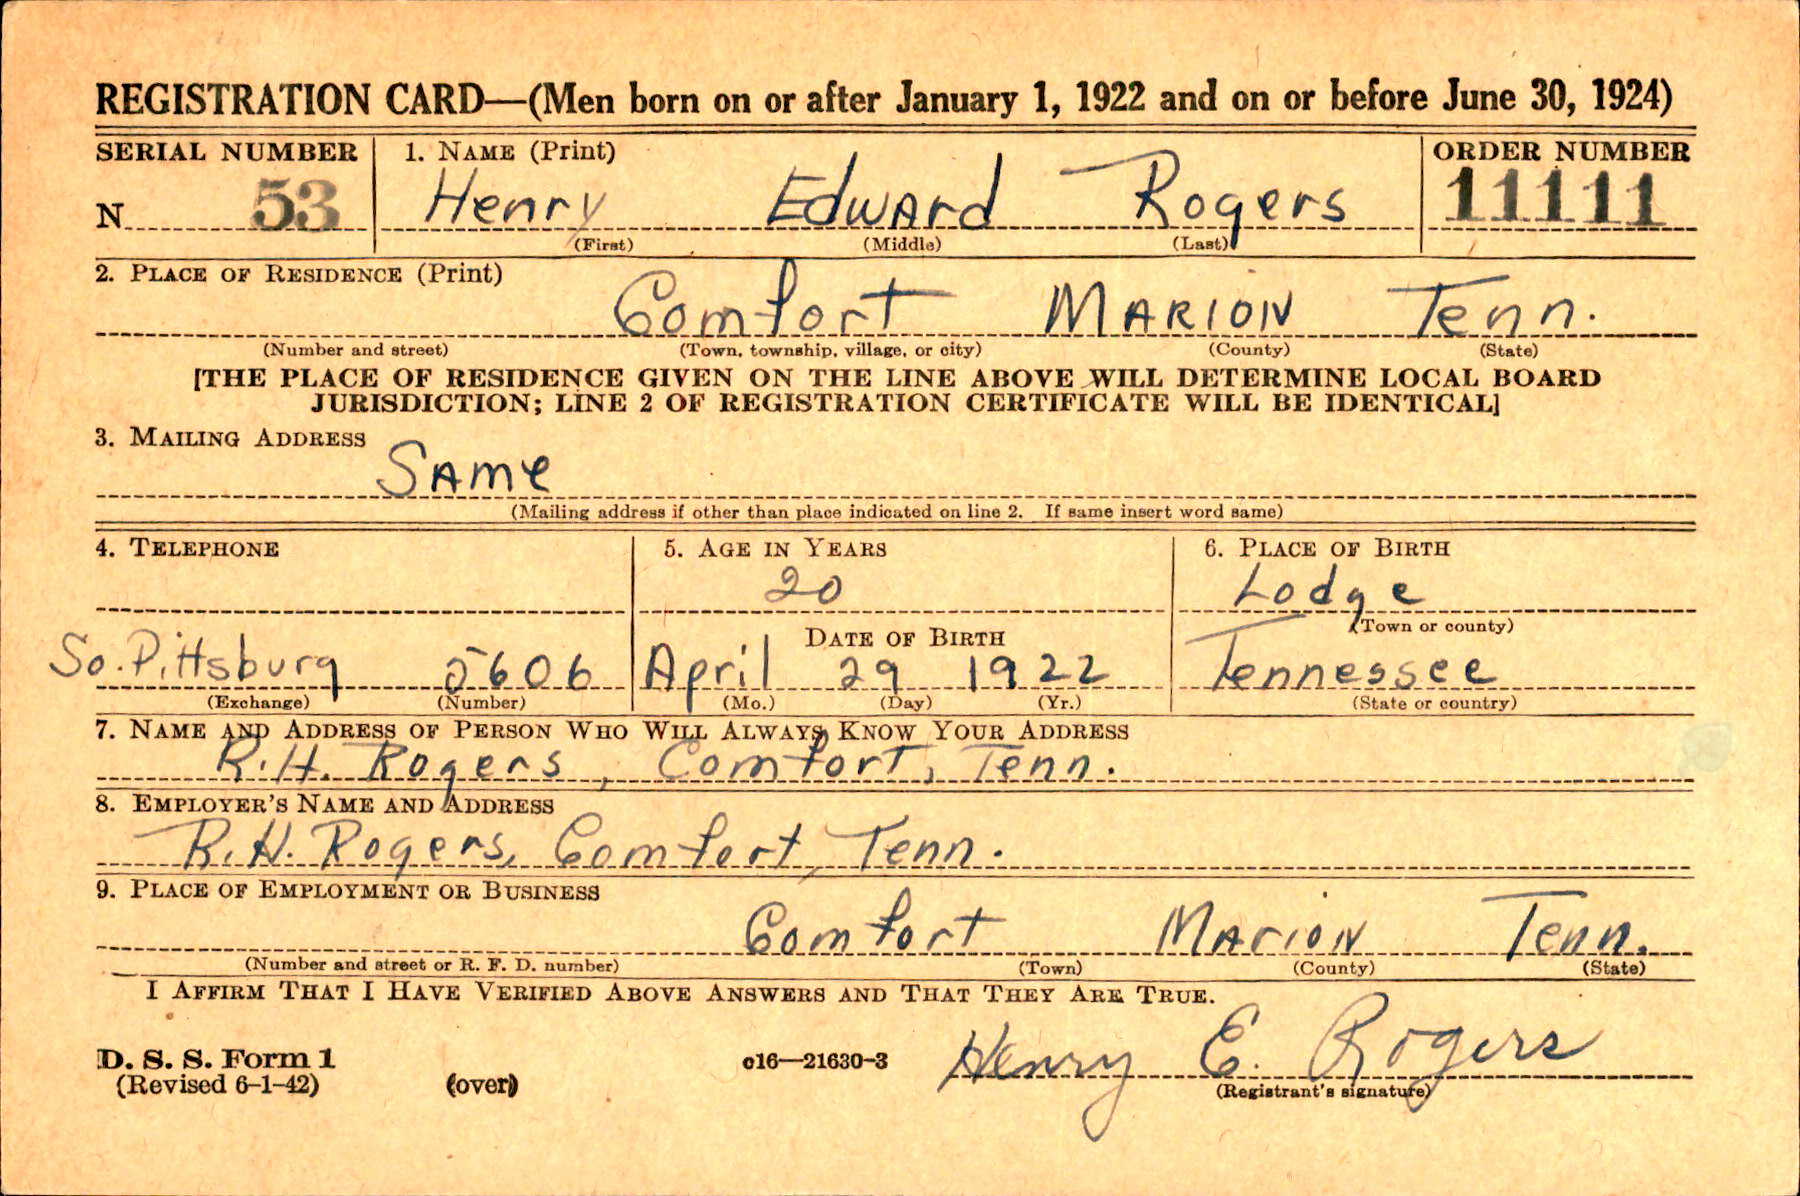 REGISTRATION CARD—(Men born on or after January 1, 1922 and on or before June 30, 1924)
SERIAL NUMBER 1. NAME (Print) ORDER NUMBER
N 53 Henry Edward Rogers 11111
(First) (Middle) (Last)
2. PLACE OF RESIDENCE (Print)
Comfort MARION Tenn.
(Number and street) (Town, township, village, or city) (County) (State)
[THE PLACE OF RESIDENCE GIVEN ON THE LINE ABOVE WILL DETERMINE LOCAL BOARD
JURISDICTION; LINE 2 OF REGISTRATION CERTIFICATE WILL BE IDENTICAL]
3. MAILING ADDRESS
SAme
(Mailing address if other than place indicated on line 2. If same insert word same)
4. TELEPHONE 5. AGE IN YEARS 6. PLACE OF BIRTH
20 Lodge
DATE OF BIRTH (Town or county)
So. Pittsburg 5606 April 29 1922 Tennessee
(Exchange) (Number) (Mo.) (Day) (Yr.) (State or country)
7. NAME AND ADDRESS OF PERSON WHO WILL ALWAYS KNOW YOUR ADDRESS
R.H. Rogers, Comfort, Tenn.
8. EMPLOYER'S NAME AND ADDRESS
R.H. Rogers, Comfort, Tenn.
9. PLACE OF EMPLOYMENT OR BUSINESS
Comfort Marion Tenn.
(Number and street or R. F. D. number) (Town) (County) (State)
I AFFIRM THAT I HAVE VERIFIED ABOVE ANSWERS AND THAT THEY ARE TRUE.
D. S. S. Form 1 c16—21630-3 Henry E. Rogers
(Revised 6-1-42) (over) (Registrant's signature)